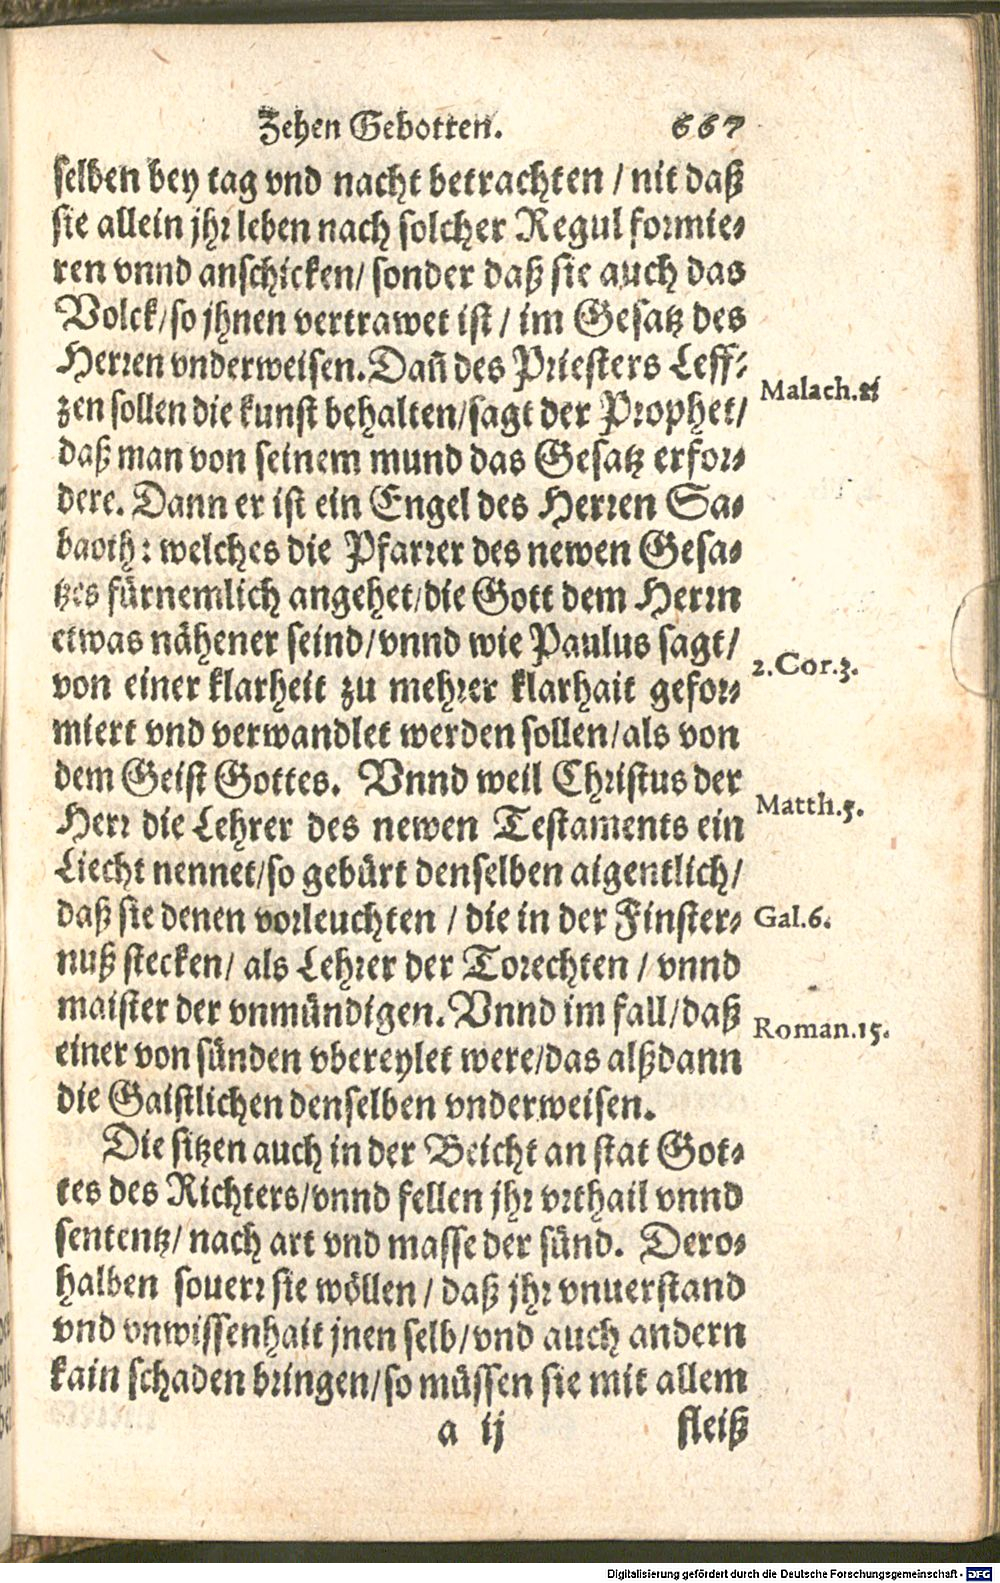 Zehen Gebotten. 667
selben bey tag vnd nacht betrachten / nit daß
sie allein jhr leben nach solcher Regul formie-
ren vnnd anschicken / sonder daß sie auch das
Volck / so jhnen vertrawet ist / im Gesatz des
Herren vnderweisen. Dañ des Priesters Leff-
zen sollen die kunst behalten / sagt der Prophet /
Malach.
daß man von seinem mund das Gesatz erfor-
dere. Dann er ist ein Engel des Herren Sa-
baoth: welches die Pfarrer des newen Gesa-
tzes fürnemlich angehet / die Gott dem Herrn
etwas nähener seind / vnnd wie Paulus sagt /
2. Cor. 3.
von einer klarheit zu mehrer klarhait gefor-
miert vnd verwandlet werden sollen / als von
dem Geist Gottes. Vnnd weil Christus der
Matth. 5.
Herr die Lehrer des newen Testaments ein
Liecht nennet / so gebürt denselben aigentlich /
daß sie denen vorleuchten / die in der Finster-
Gal. 6.
nuß stecken / als Lehrer der Torechten / vnnd
maister der vnmündigen. Vnnd im fall / daß
Roman. 15.
einer von sünden vbereylet were / das alßdann
die Gaistlichen denselben vnderweisen.
Die sitzen auch in der Beicht an stat Got-
tes des Richters / vnnd fellen jhr vrthail vnnd
sententz / nach art vnd masse der sünd. Dero-
halben souerr sie wöllen / daß jhr vnuerstand
vnd vnwissenhait jnen selb / vnd auch andern
kain schaden bringen / so müssen sie mit allem
a ij fleiß
Digitalisierung gefördert durch die Deutsche Forschungsgemeinschaft - DFG